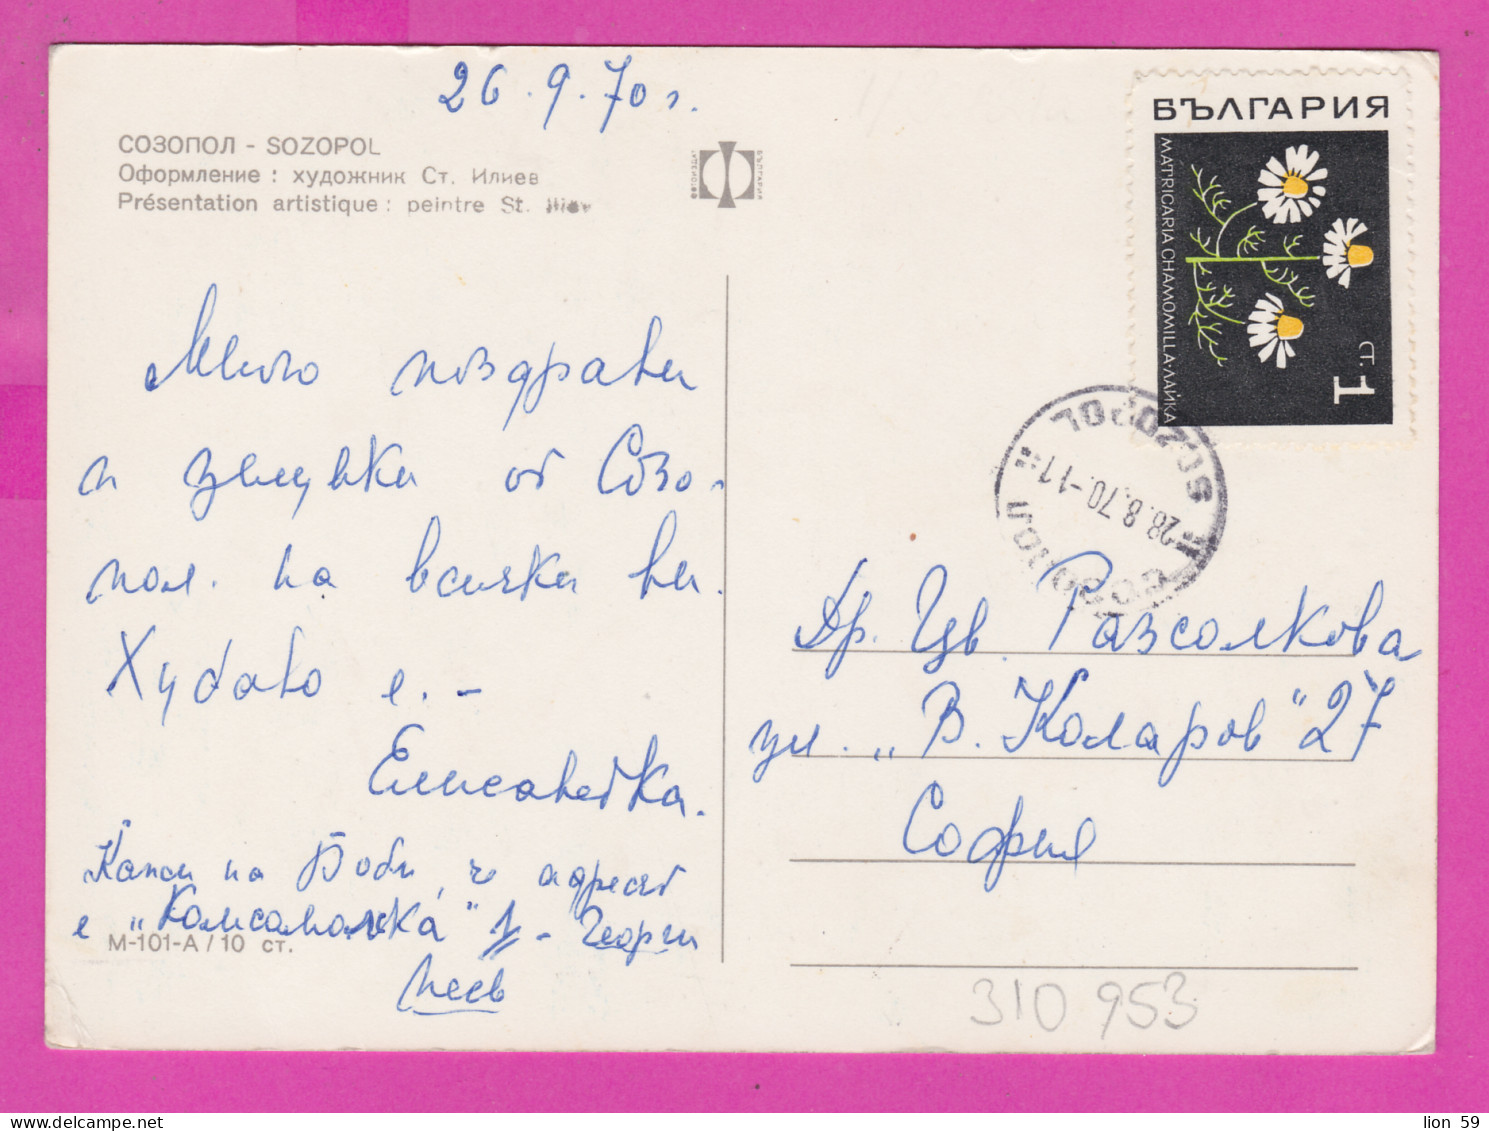 26.9.70 г.
СОЗОПОЛ - SOZOPOL
Оформление : художник Ст. Илиев
Présentation artistique : peintre St. Iliev
ФОТОИЗДАТ
БЪЛГАРИЯ
Много поздрави
и целувки от Созо-
пол. на всички ви.
Хубаво е. -
Елисаветка.
Кажи на Боби, че адресът
е "Комсомолка" 1 - Георги
М-101-А / 10 ст.
БЪЛГАРИЯ
MATRICARIA CHAMOMILLA-ЛАЙКА
1 СТ.
SOZOPOL
28.8.70.-17
СОЗОПОЛ
Др. Цв. Разсолкова
ул. „В. Коларов" 27
София
310 953
lion 59